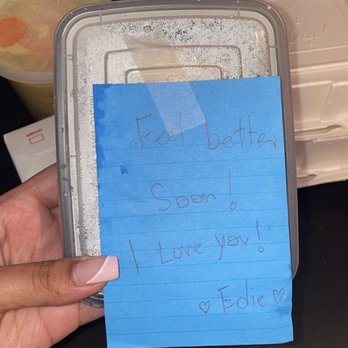 Feel better
Soon!
I Love you!
♡ Edie ♡